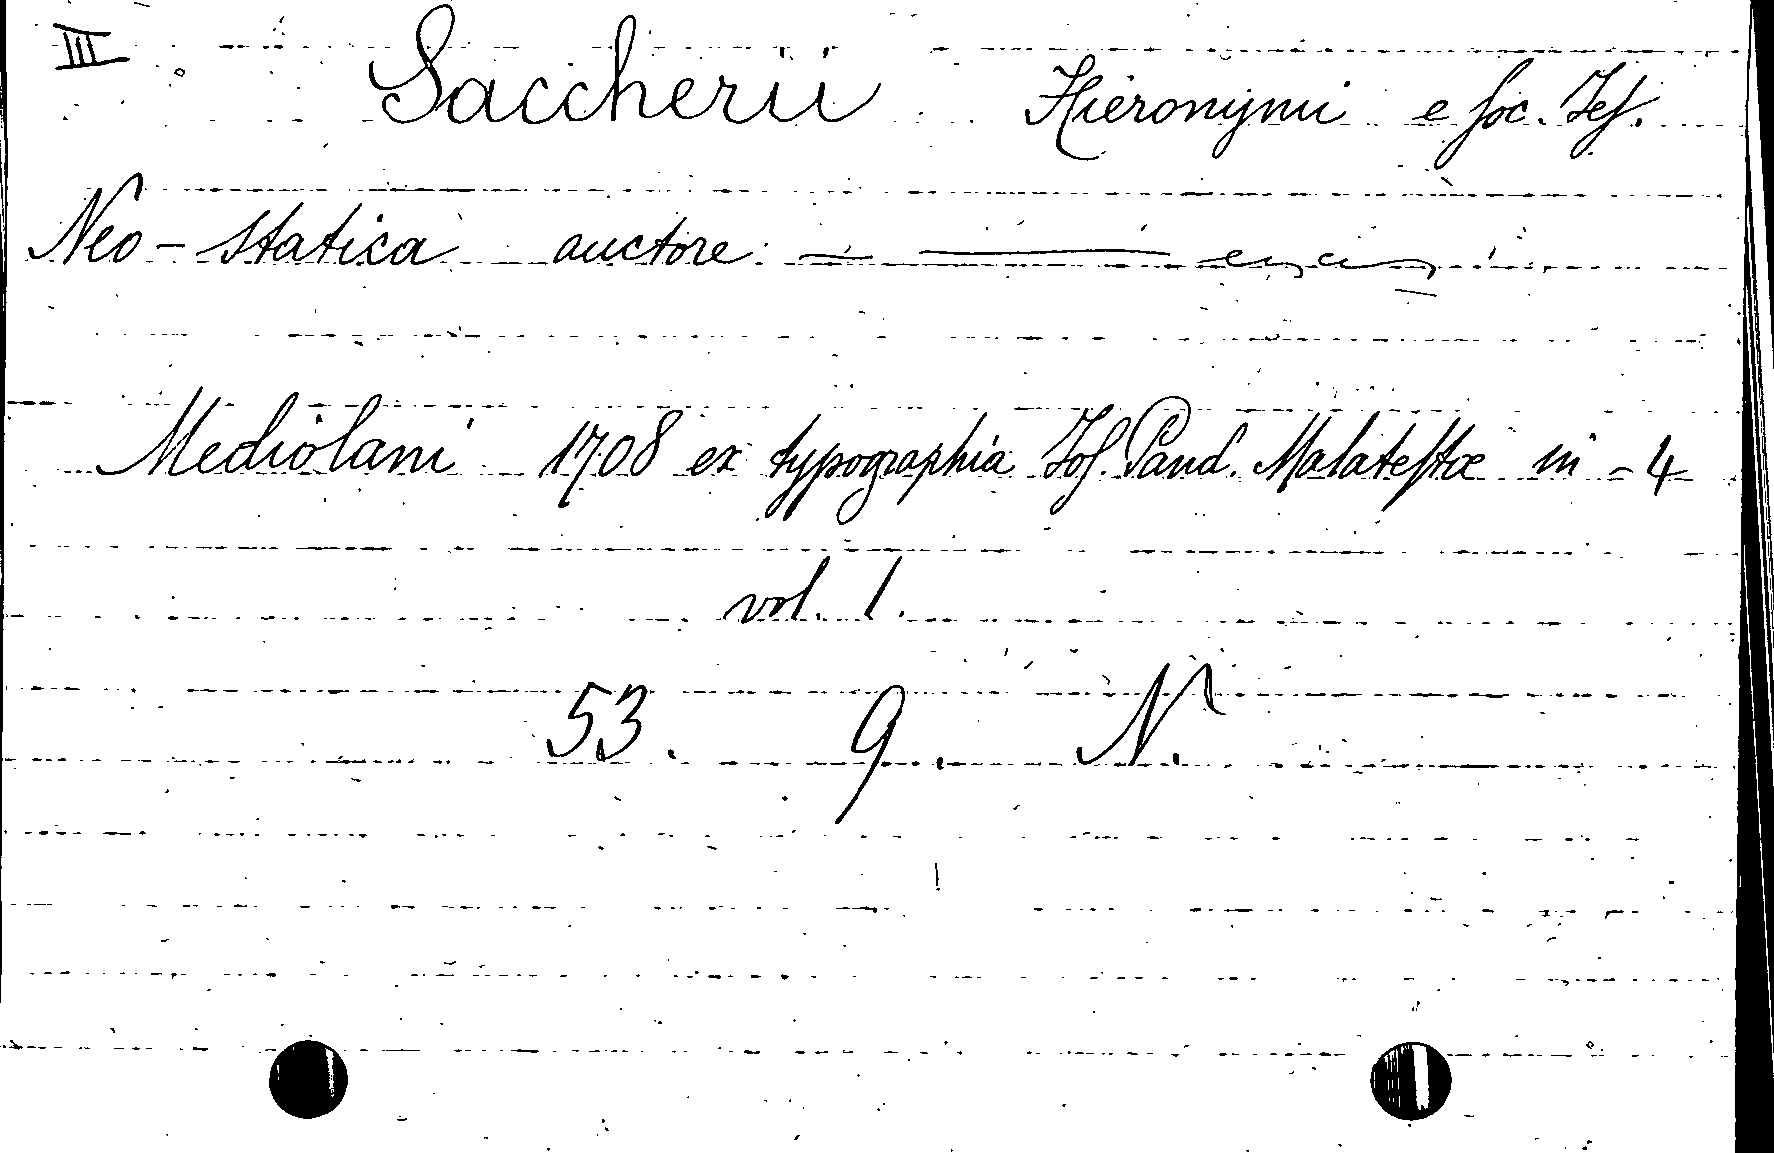 III Saccherii Hieronymi e Soc. Jes.
Neo-statica auctore: — —
Mediolani 1708 ex typographia Jos. Pand. Malatestæ in-4
vol. 1.
53. 9. N.